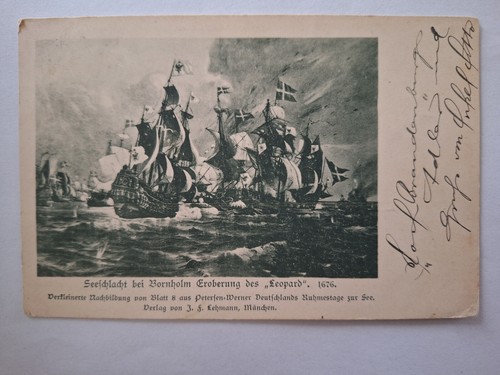 Seeschlacht bei Bornholm Eroberung des „Leopard“. 1676.
Verkleinerte Nachbildung von Blatt 8 aus Petersen-Werner Deutschlands Ruhmestage zur See.
Verlag von J. F. Lehmann, München.
Adler und
Gruß von